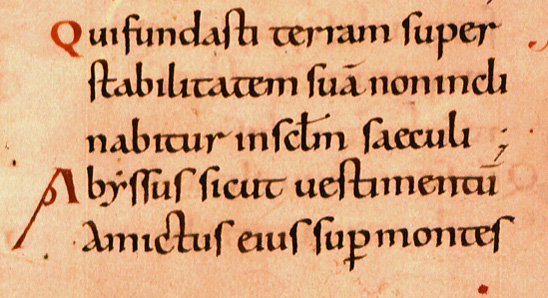 Qui fundasti terram super
stabilitatem suā non incli
nabitur in scl̄m saeculi ;
Abẏssus sicut uestimentū
Amictus eius suꝑ montes